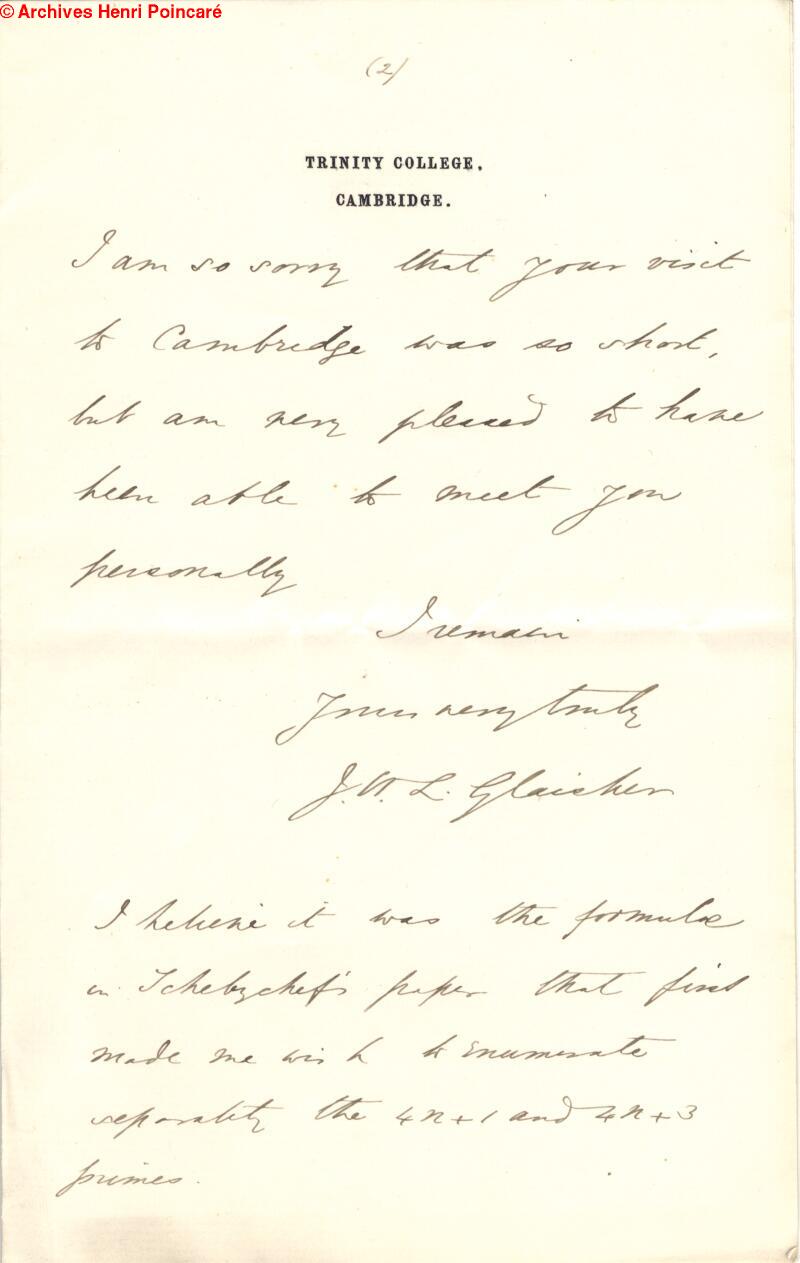 © Archives Henri Poincaré
(2)
TRINITY COLLEGE.
CAMBRIDGE.
I am so sorry that your visit
to Cambridge was so short,
but am very pleased to have
been able to meet you
personally
I remain
Yours very truly
J.W.L. Glaisher
I believe it was the formulæ
in Tchebychef's paper that first
made me wish to enumerate
separately the 4n+1 and 4n+3
primes.